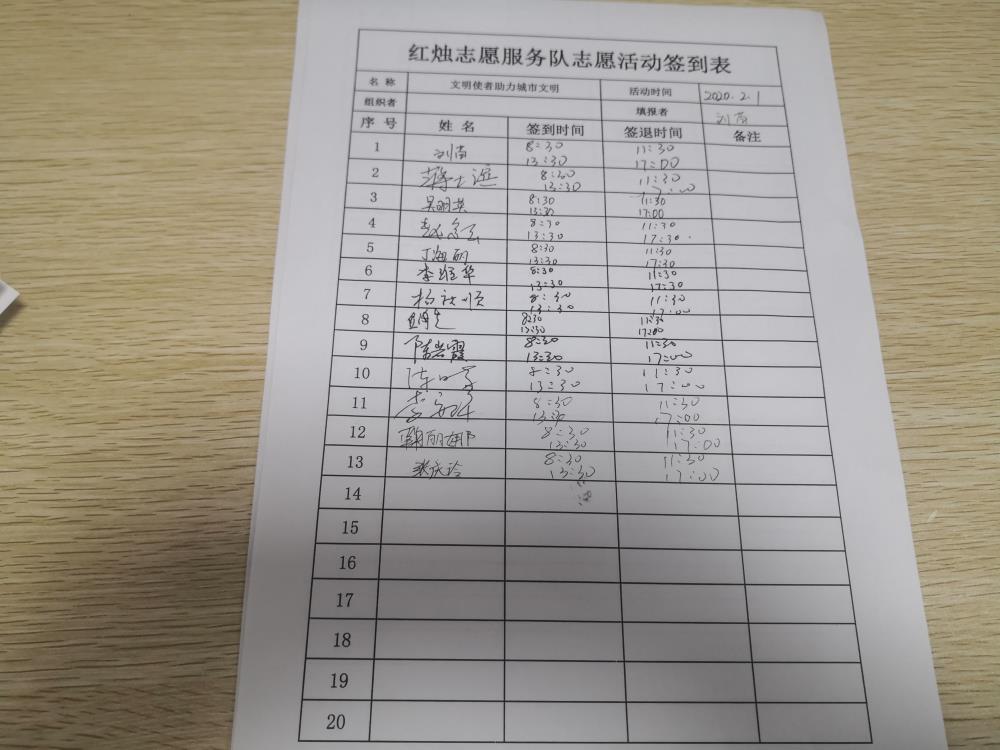 红烛志愿服务队志愿活动签到表
名称 文明使者助力城市文明 活动时间 2020.2.1
组织者 填报者
序号 姓名 签到时间 签退时间 备注
1 8:30 11:30
13:30 17:00
2 8:30 11:30
13:30 17:00
3 吴明英 8:30 11:30
13:30 17:00
4 8:30 11:30
13:30 17:30
5 丁海丽 8:30 11:30
13:30 17:30
6 8:30 11:30
13:30 17:30
7 8:30 11:30
13:30 17:00
8 8:30 11:30
13:30 17:00
9 陈岩霞 8:30 11:30
13:30 17:00
10 8:30 11:30
13:30 17:00
11 8:30 11:30
13:30 17:00
12 鞠丽娜 8:30 11:30
13:30 17:00
13 8:30 11:30
13:30 17:00
14
15
16
17
18
19
20